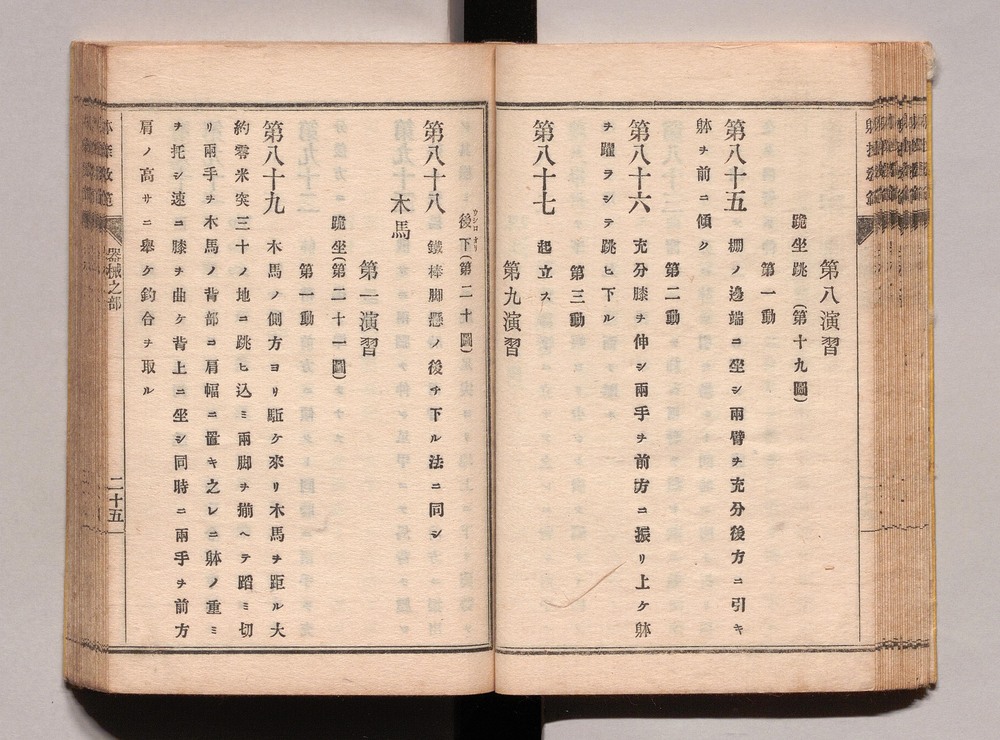 第八演習
跪坐跳(第十九圖)
第一動
第八十五 棚ノ邊端ニ坐シ兩臂ヲ充分後方ニ引キ
躰ヲ前ニ傾ク
第二動
第八十六 充分膝ヲ伸シ兩手ヲ前方ニ振リ上ケ躰
ヲ躍ラシテ跳ヒ下ル
第三動
第八十七 起立ス
第九演習
後下(第二十圖)
第八十八 鐵棒脚懸ノ後ヲ下ル法ニ同シ
木馬
第一演習
跪坐(第二十一圖)
第一動
第八十九 木馬ノ側方ヨリ駈ケ來リ木馬ヲ距ル大
約零米突三十ノ地ニ跳ヒ込ミ兩脚ヲ揃ヘテ蹈ミ切
リ兩手ヲ木馬ノ背部ニ肩幅ニ置キ之レニ躰ノ重ミ
ヲ托シ速ニ膝ヲ曲ケ背上ニ坐シ同時ニ兩手ヲ前方
肩ノ高サニ擧ケ釣合ヲ取ル
器械之部
二十五